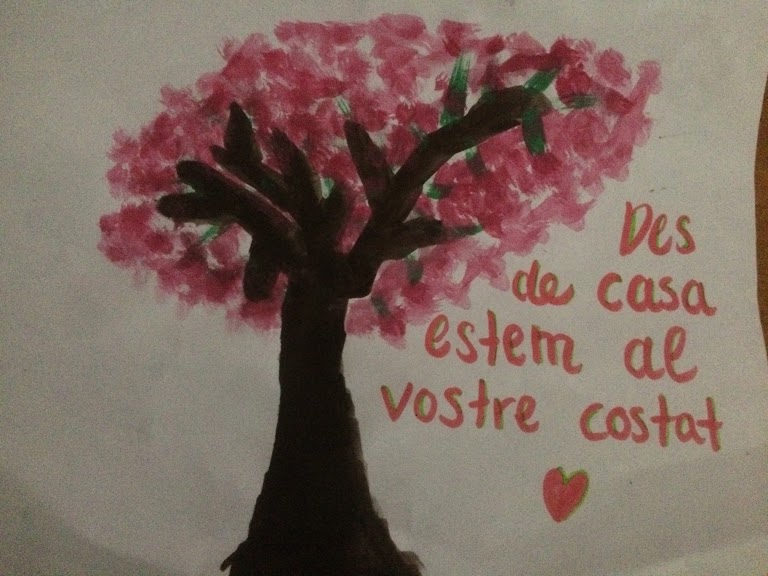 Des
de casa
estem al
vostre costat